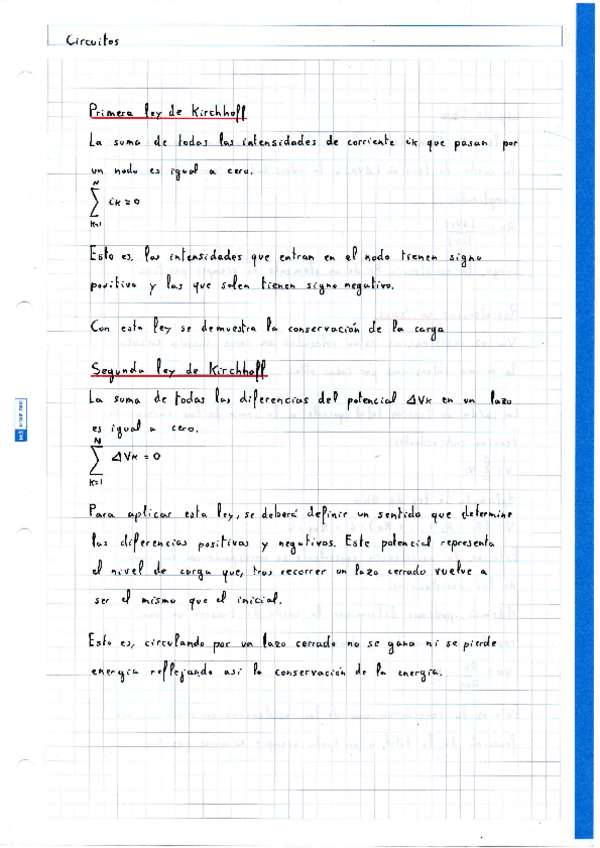 Circuitos
Primera ley de Kirchhoff
La suma de todas las intensidades de corriente ik que pasan por
un nodo es igual a cero.
N
∑ ik = 0
k=1
Esto es, las intensidades que entran en el nodo tienen signo
positivo y las que salen tienen signo negativo.
Con esta ley se demuestra la conservación de la carga
Segunda ley de Kirchhoff
La suma de todas las diferencias del potencial ΔVk en un lazo
es igual a cero.
N
∑ ΔVk = 0
k=1
Para aplicar esta ley, se deberá definir un sentido que determine
las diferencias positivas y negativas. Este potencial representa
el nivel de carga que, tras recorrer un lazo cerrado vuelve a
ser el mismo que el inicial.
Esto es, circulando por un lazo cerrado no se gana ni se pierde
energía reflejando asi la conservación de la energía.